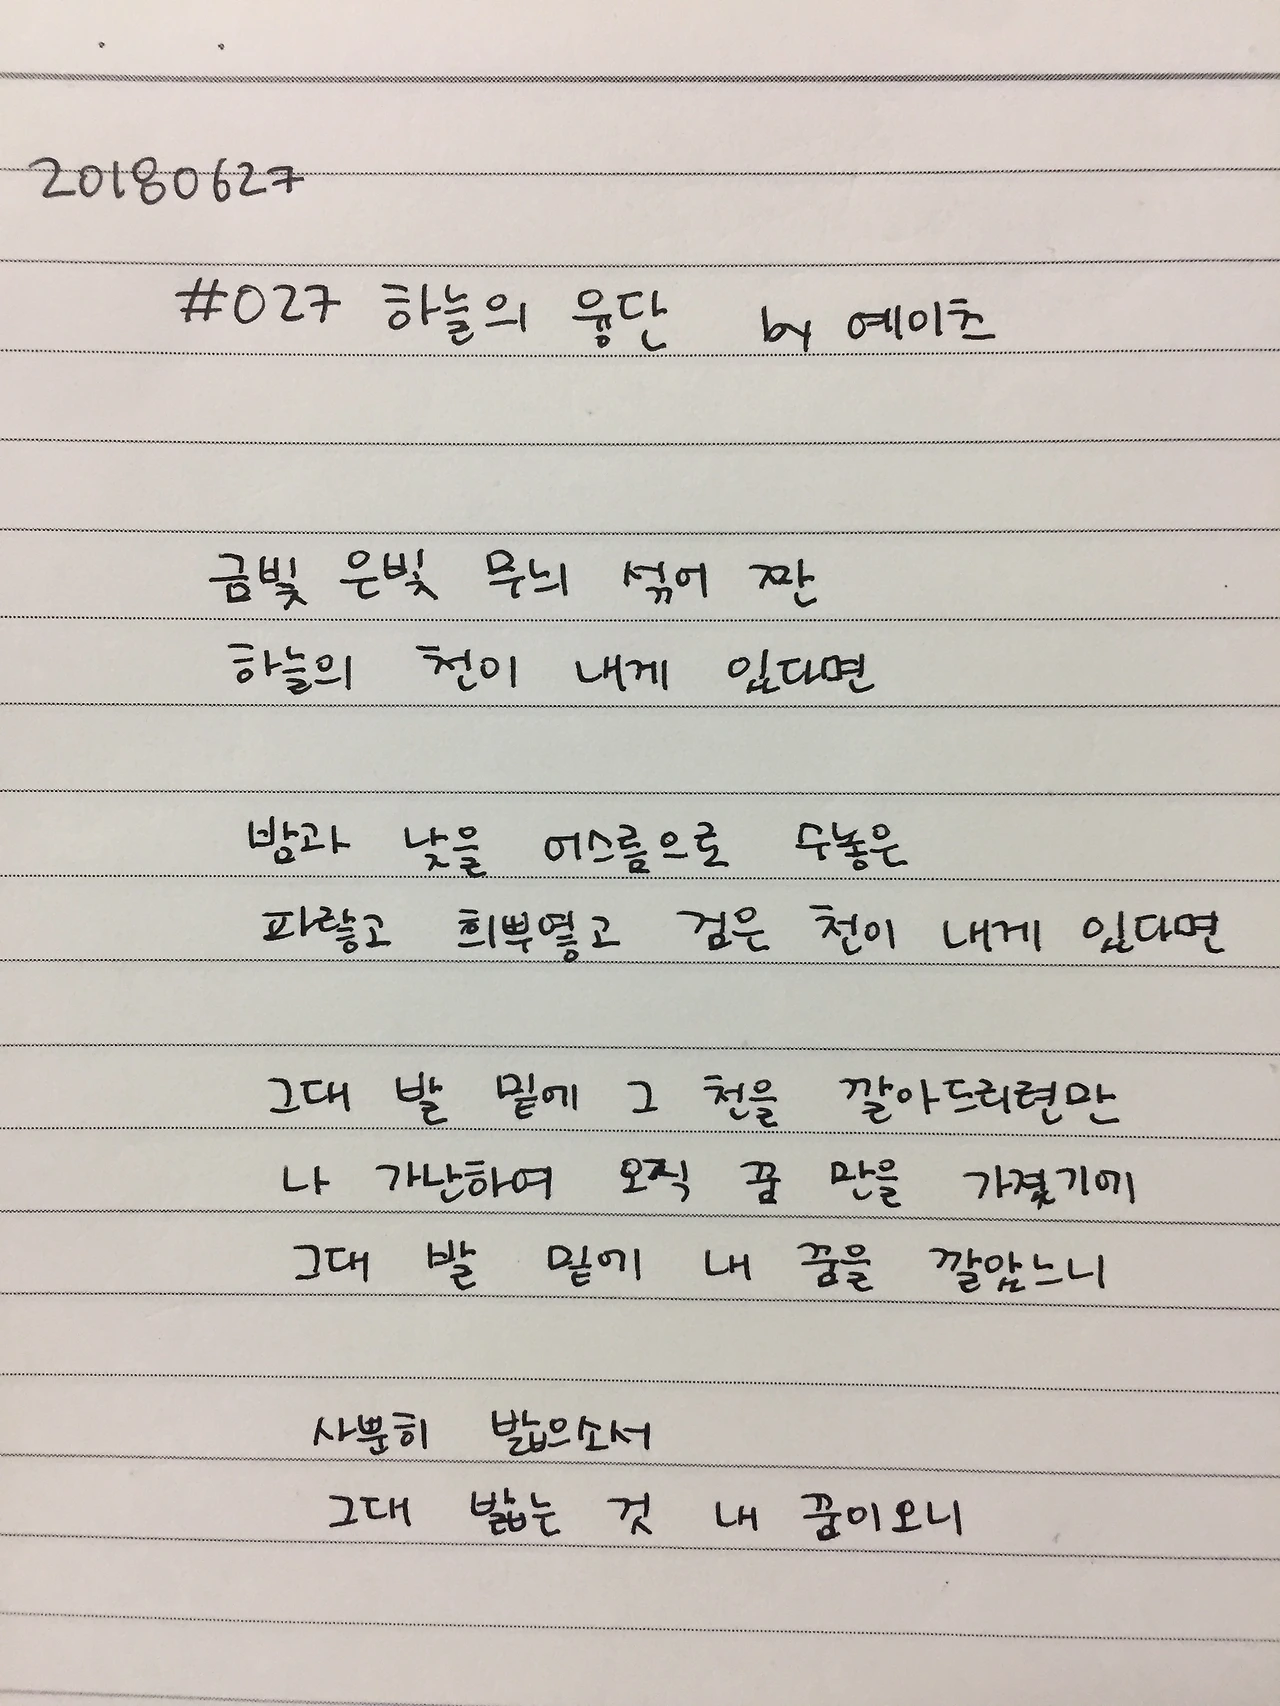 20180627
#027 하늘의 융단 by 예이츠
금빛 은빛 무늬 섞어 짠
하늘의 천이 내게 있다면
밤과 낮을 어스름으로 수놓은
파랗고 희뿌옇고 검은 천이 내게 있다면
그대 발 밑에 그 천을 깔아드리련만
나 가난하여 오직 꿈 만을 가졌기에
그대 발 밑에 내 꿈을 깔았느니
사뿐히 밟으소서
그대 밟는 것 내 꿈이오니